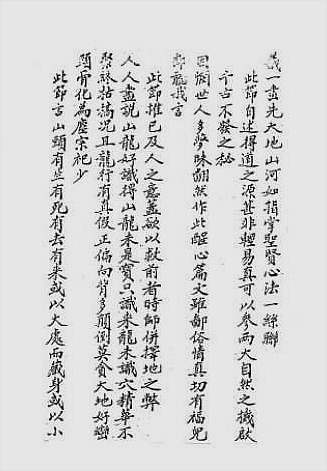 義一盡先天地山河如指掌聖賢心法一絲聯
此節自述得道之源甚非輕易真可以參兩大自然之機啟
千古不發之秘
因憫世人多夢昧翻然作此醒心篇文雖鄙俗情真切有福兒
郎龍我言
此節推己及人之意蓋欲以救前者時師僻擇地之弊
人人盡說山龍好識得山龍未是寶只識來龍未識穴精華不
聚終枯槁况且龍行有真假正偏向背多顛倒莫貪大地好巒
頭骨化為塵宗祀少
此節言山頭有生有死有去有來或以大處而藏身或以小